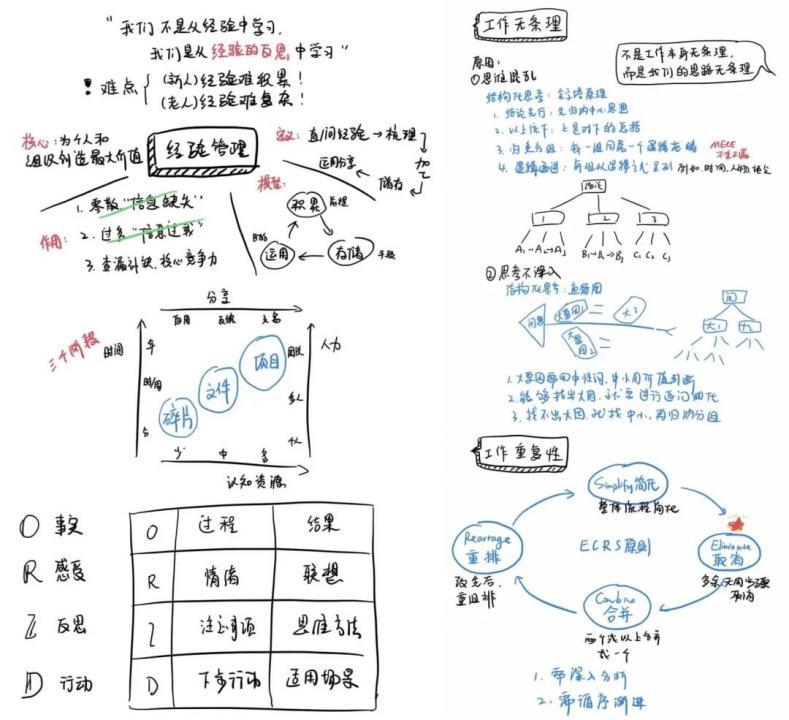 "我们不是从经验中学习,
我们是从经验的反思中学习"
! 难点
(新人)经验难积累!
(老人)经验难复杂!
核心:为个人和
组织创造最大价值
经验管理
定义:直/间经验→梳理
加工
储存
运用分享
作用:
1. 零散"信息缺失"
2. 过多"信息过载"
3. 查漏补缺、核心竞争力
模型:
积累
存储
手段
运用
目的
三个阶段
分享
时间
年
分
碎片
文件
项目
团队
多人
个人
人力
少 中 多
认知资源
O 事实
R 感受
I 反思
D 行动
O 过程 结果
R 情绪 联想
I 注意事项 思维方法
D 下步行动 适用场景
工作无条理
不是工作本身无条理,
而是我们的思路无条理
原因:
①思维混乱
结构化思考:金字塔原理
1. 结论先行:先归纳中心思想
2. 以上统下:上是对下的总括
3. 归类分组:每一组同属一个逻辑范畴
MECE
不重不漏
4. 逻辑递进:每组以逻辑方式呈列
结论
1 2 3
A₁→A₂→A₃ B₁→B₂→B₃ C₁ C₂ C₃
②思考不深入
结构化思考:鱼骨图
问题
大要因1
大要因2
大3
问
大1
1. 大要因要用中性词,中小用价值判断
2. 能够找出大因,就要进行追问细化
3. 找不出大因,就找中小,再归纳分组
工作重复性
Simplify 简化
整体流程简化
Rearrange
重排
改先后,
重组排
ECRS原则
Eliminate
取消
多余/无用步骤
取消
Combine
合并
两个或以上合并
成一个
1. 需深入分析
2. 需循序渐进